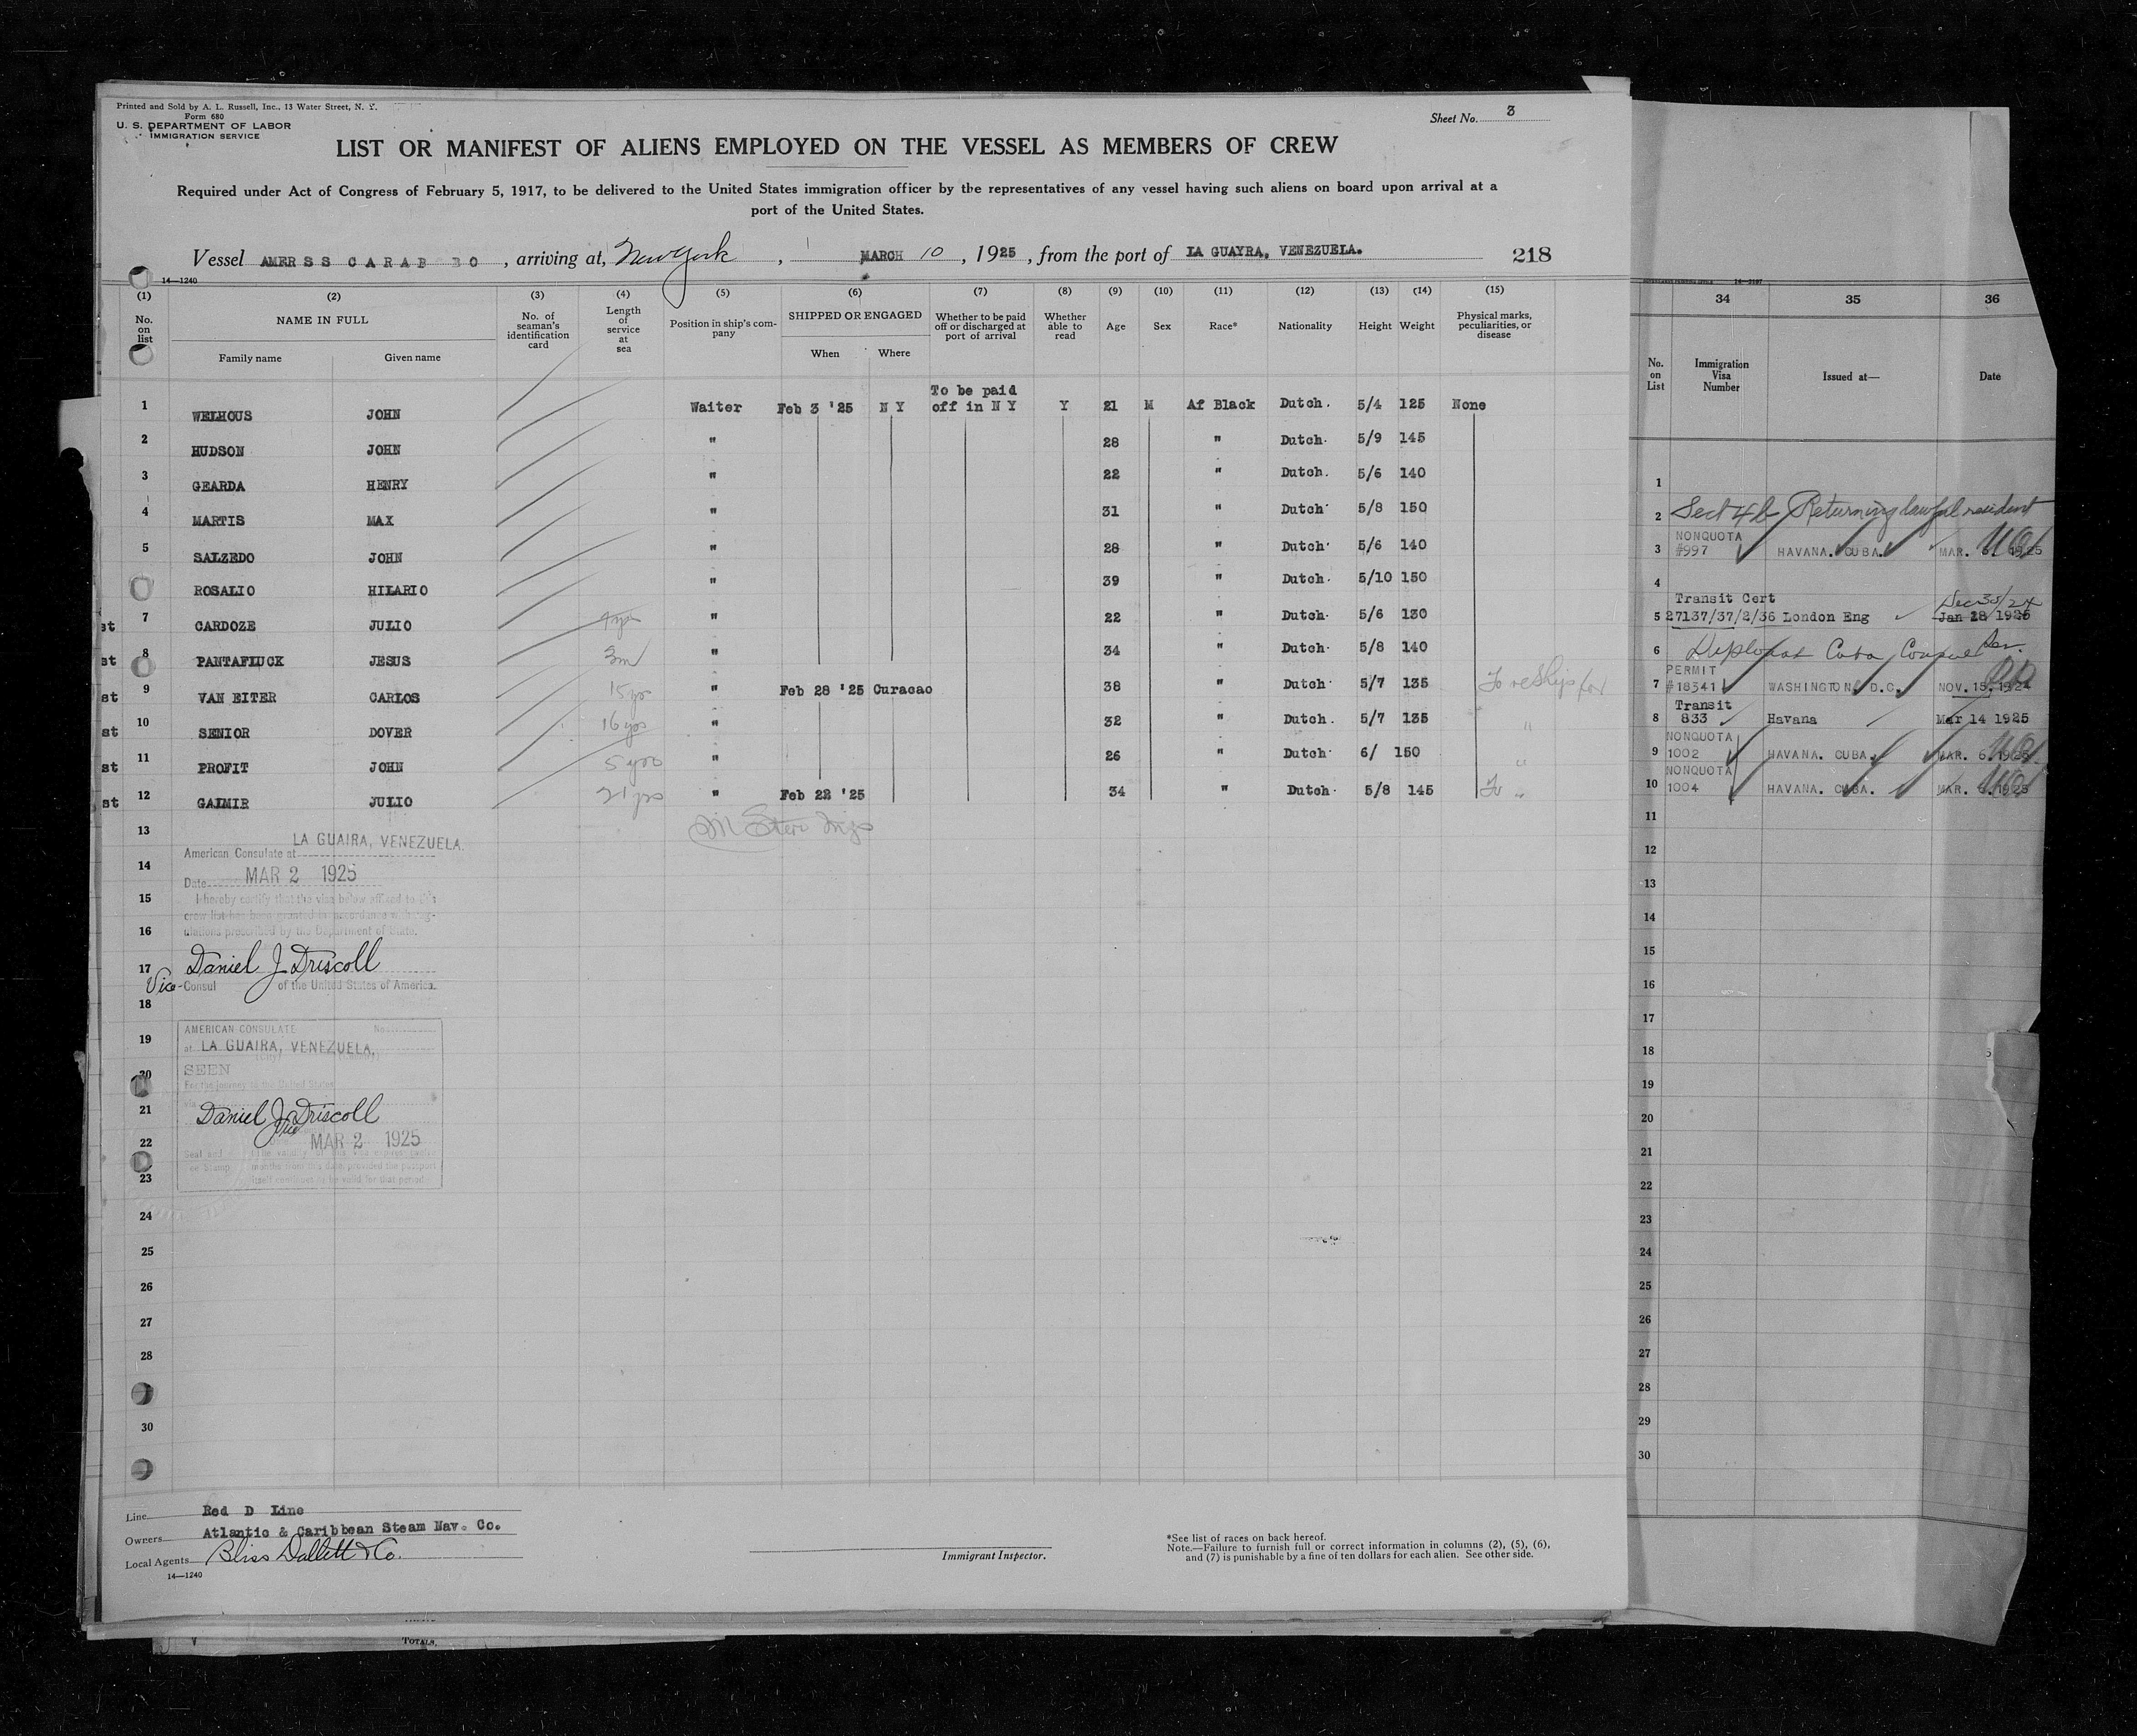 Printed and Sold by A. L. Russell, Inc., 13 Water Street, N. Y.
Form 680
U. S. DEPARTMENT OF LABOR
IMMIGRATION SERVICE
Sheet No. 3
LIST OR MANIFEST OF ALIENS EMPLOYED ON THE VESSEL AS MEMBERS OF CREW
Required under Act of Congress of February 5, 1917, to be delivered to the United States immigration officer by the representatives of any vessel having such aliens on board upon arrival at a
port of the United States.
Vessel AMER S S CARAB BO, arriving at, New York, MARCH 10, 1925, from the port of LA GUAYRA, VENEZUELA. 218
14—1240
(1) (2) (3) (4) (5) (6) (7) (8) (9) (10) (11) (12) (13) (14) (15)
No. on list
NAME IN FULL
Family name Given name
No. of seaman's identification card
Length of service at sea
Position in ship's company
SHIPPED OR ENGAGED
When Where
Whether to be paid off or discharged at port of arrival
Whether able to read
Age
Sex
Race*
Nationality
Height
Weight
Physical marks, peculiarities, or disease
1 WELHOUS JOHN Waiter Feb 3 '25 N Y To be paid off in N Y Y 21 M Af Black Dutch. 5/4 125 None
2 HUDSON JOHN " 28 " Dutch. 5/9 145
3 GEARDA HENRY " 22 " Dutch. 5/6 140
4 MARTIS MAX " 31 " Dutch 5/8 150
5 SALZEDO JOHN " 28 " Dutch 5/6 140
ROSALIO HILARIO " 39 " Dutch. 5/10 150
st 7 CARDOZE JULIO " 22 " Dutch. 5/6 130
st 8 PANTAFLUCK JESUS 3m " 34 " Dutch. 5/8 140
st 9 VAN EITER CARLOS 15 yrs " Feb 28 '25 Curacao 38 " Dutch. 5/7 135 To reship for
st 10 SENIOR DOVER 16 yrs " 32 " Dutch. 5/7 135 "
st 11 PROFIT JOHN 5 yrs " 26 " Dutch. 6/ 150 "
st 12 GALMIR JULIO 21 yrs " Feb 22 '25 34 " Dutch. 5/8 145 To "
13
14
15
16
17
18
19
20
21
22
23
24
25
26
27
28
30
American Consulate at LA GUAIRA, VENEZUELA.
Date MAR 2 1925
I hereby certify that the visa below affixed to this
crew list has been granted in accordance with reg-
ulations prescribed by the Department of State.
Daniel J Driscoll
Vice-Consul of the United States of America.
AMERICAN CONSULATE No.
at LA GUAIRA, VENEZUELA,
SEEN
For the journey to the United States
via
Daniel J Driscoll
Vice
MAR 2 1925
Line Red D Line
Owners Atlantic & Caribbean Steam Nav. Co.
Local Agents Bliss Dallett & Co.
14—1240
Immigrant Inspector.
*See list of races on back hereof.
Note.—Failure to furnish full or correct information in columns (2), (5), (6),
and (7) is punishable by a fine of ten dollars for each alien. See other side.
TOTALS,
34 35 36
No. on List
Immigration Visa Number
Issued at—
Date
1
2 Sect 4b Returning lawful resident
3 NONQUOTA #997 HAVANA. CUBA. MAR. 6. 1925
4
5 Transit Cert 27137/37/2/36 London Eng Jan 28 1925 Dec 30/24
6 Diplomat Cuba Consul
7 PERMIT #18341 WASHINGTON, D.C. NOV. 15, 1924
8 Transit 833 Havana Mar 14 1925
9 NONQUOTA 1002 HAVANA. CUBA. MAR. 6. 1925
10 NONQUOTA 1004 HAVANA. CUBA. MAR. 6. 1925
11
12
13
14
15
16
17
18
19
20
21
22
23
24
25
26
27
28
29
30